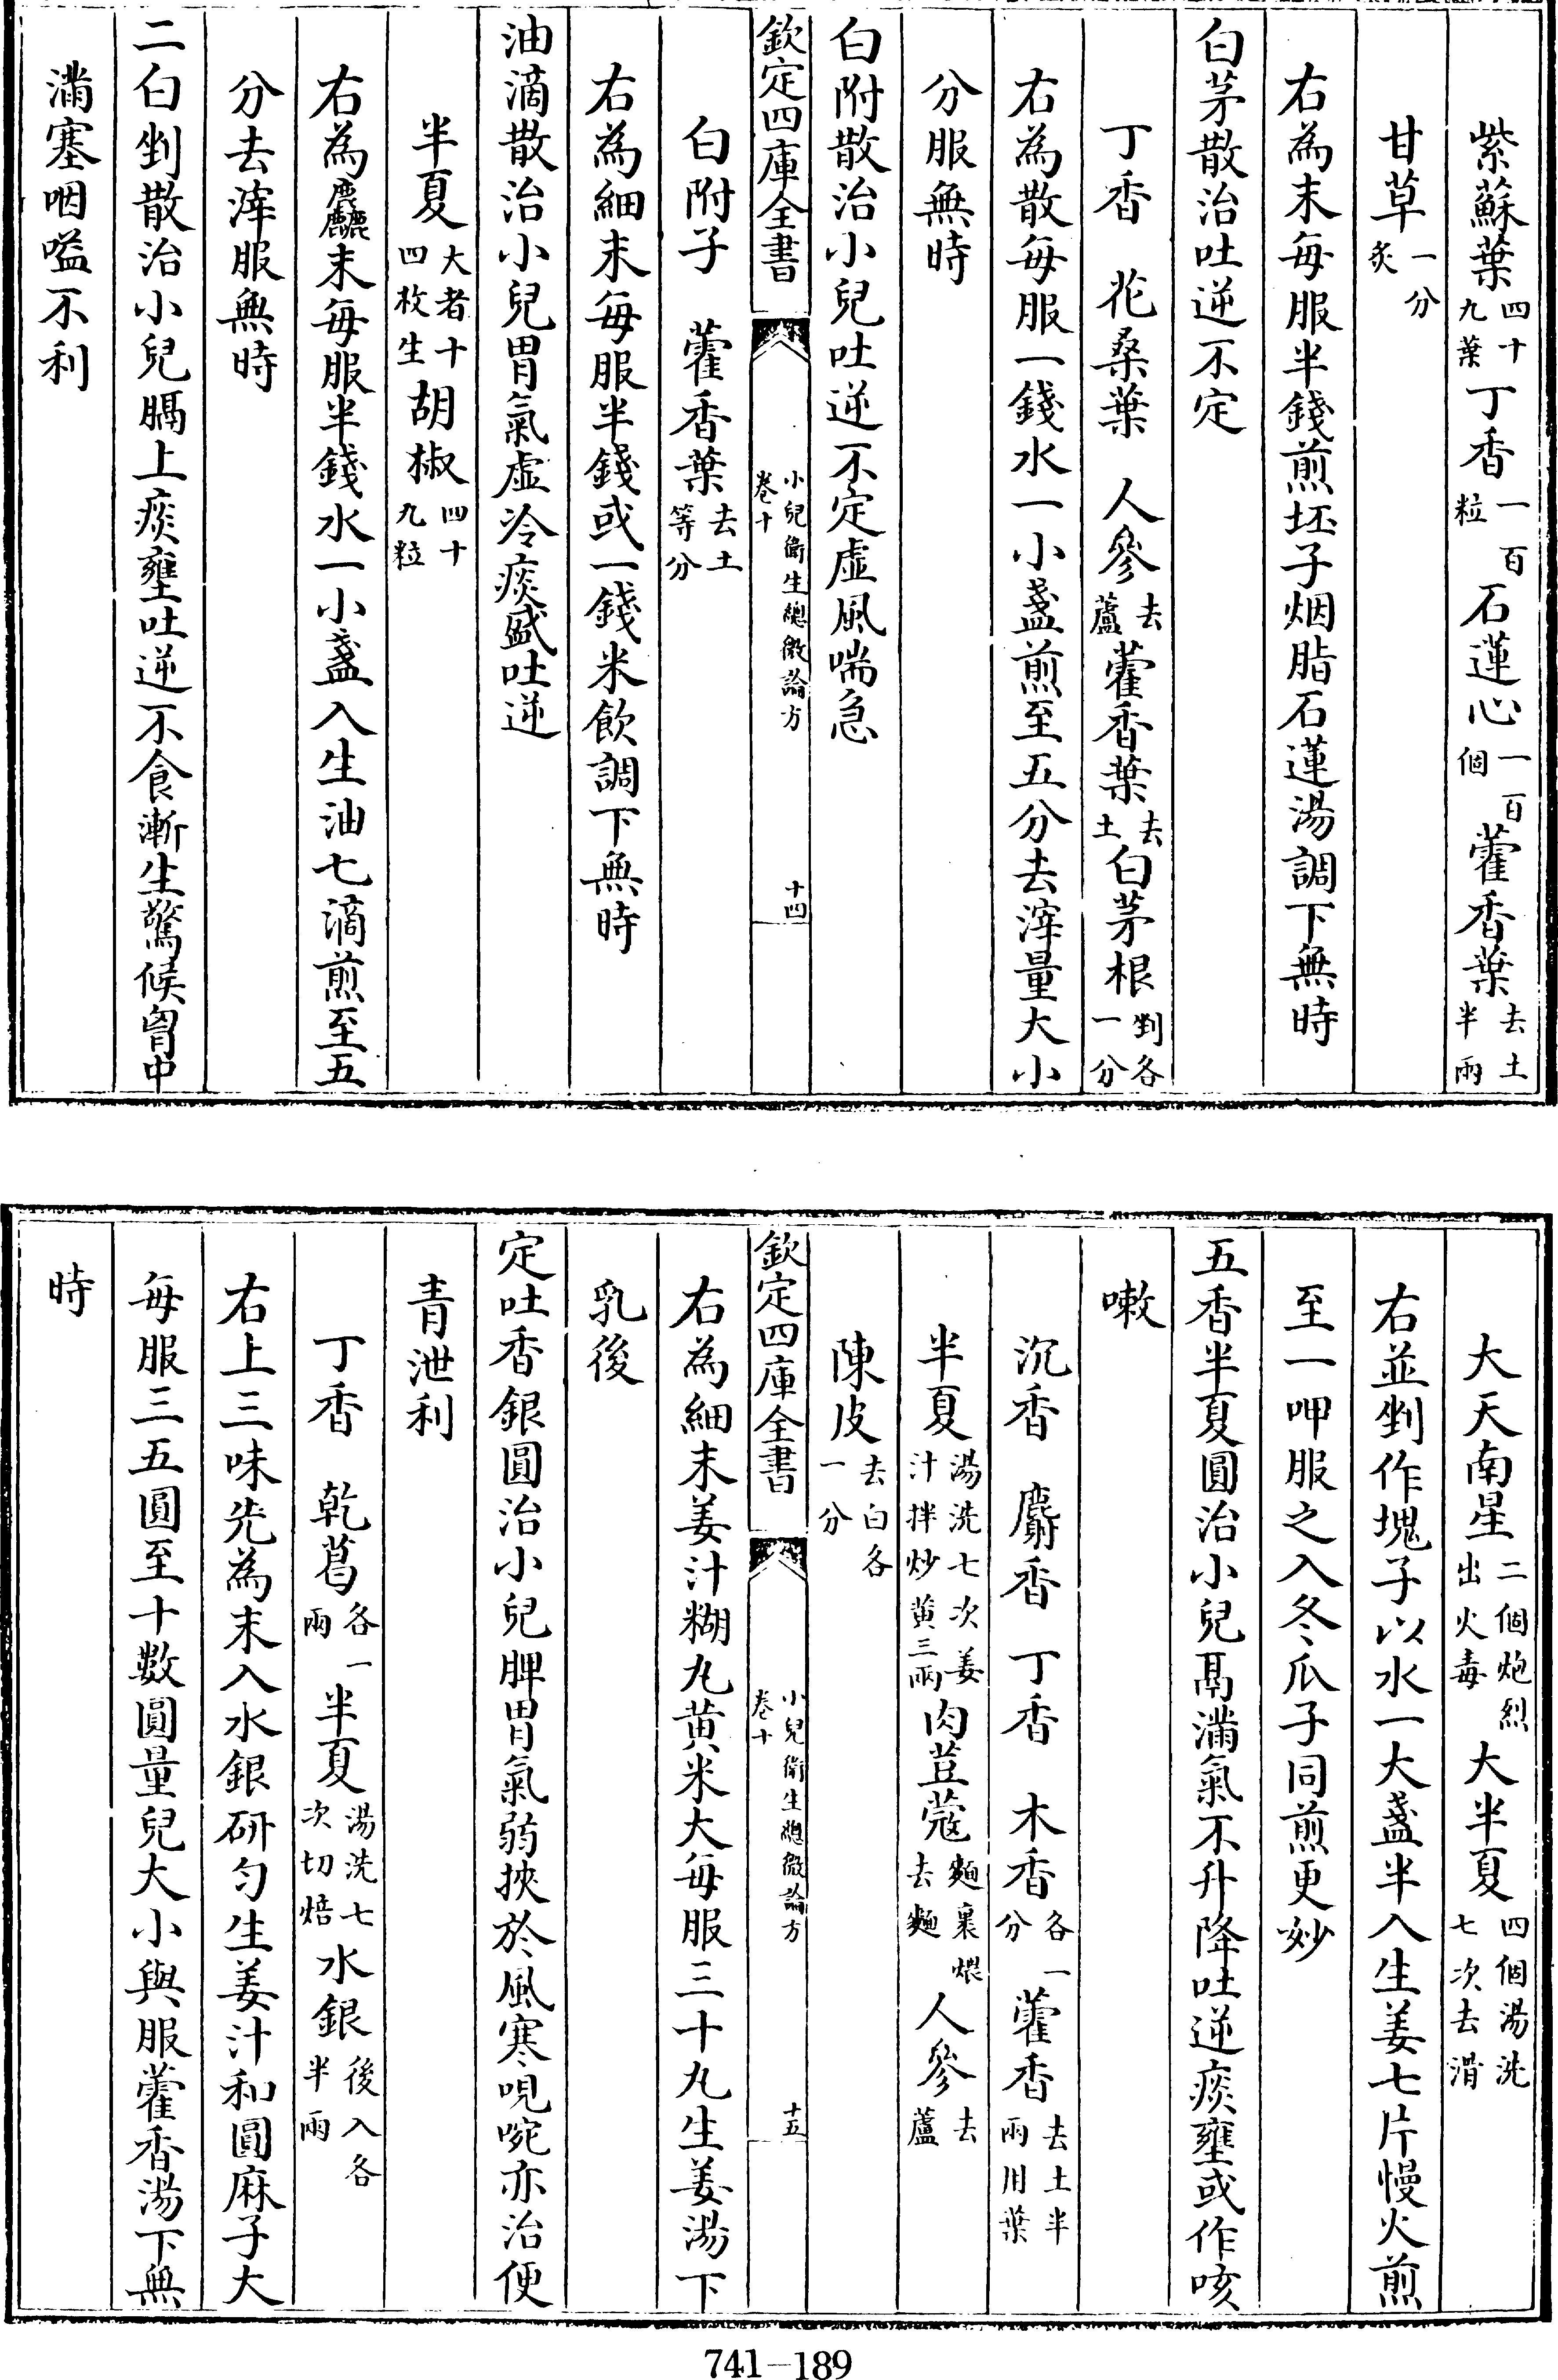 紫蘇葉四十九葉丁香一百粒石蓮心一百個藿香葉去土半兩
甘草一分炙
右為末每服半錢煎坯子烟脂石蓮湯調下無時
白茅散治吐逆不定
丁香 花桑葉 人參去蘆藿香葉去土白茅根剉各一分
右為散每服一錢水一小盞煎至五分去滓量大小
分服無時
白附散治小兒吐逆不定虛風喘急
欽定四庫全書 小兒衛生總微論方卷十 十四
白附子 藿香葉去土等分
右為細末每服半錢或一錢米飲調下無時
油滴散治小兒胃氣虛冷痰盛吐逆
半夏大者十四枚生胡椒四十九粒
右為麤末每服半錢水一小盞入生油七滴煎至五
分去滓服無時
二白剉散治小兒膈上痰壅吐逆不食漸生驚候胷中
滿塞咽嗌不利
大天南星二個炮烈出火毒大半夏四個湯洗七次去滑
右並剉作塊子以水一大盞半入生姜七片慢火煎
至一呷服之入冬瓜子同煎更妙
五香半夏圓治小兒鬲滿氣不升降吐逆痰壅或作咳
嗽
沉香 麝香 丁香 木香各一分藿香去土半兩用葉
半夏湯洗七次姜汁拌炒黄三兩肉荳蔻麵裹煨去麵人參去蘆
陳皮去白各一分
欽定四庫全書 小兒衛生總微論方卷十 十五
右為細末姜汁糊丸黄米大每服三十九生姜湯下
乳後
定吐香銀圓治小兒脾胃氣弱挾於風寒哯啘亦治便
青泄利
丁香 乾葛各一兩半夏湯洗七次切焙水銀後入各半兩
右上三味先為末入水銀研勻生姜汁和圓麻子大
每服三五圓至十數圓量兒大小與服藿香湯下無
時
741—189